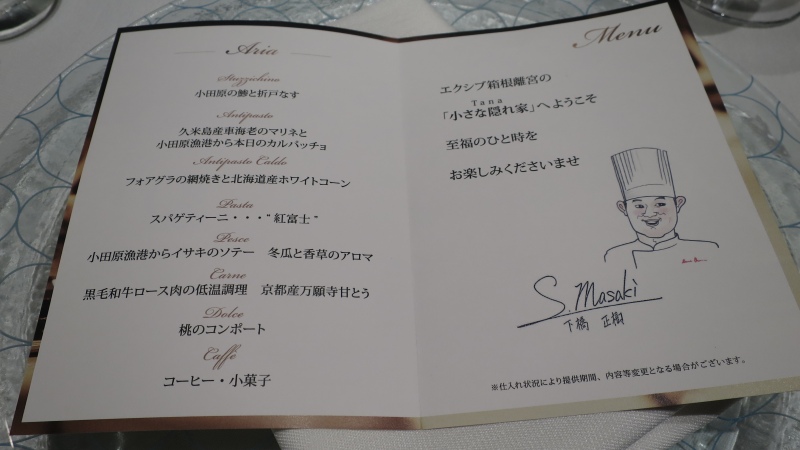 Aria
Stuzzichino
小田原の鯵と折戸なす
Antipasto
久米島産車海老のマリネと
小田原漁港から本日のカルパッチョ
Antipasto Caldo
フォアグラの網焼きと北海道産ホワイトコーン
Pasta
スパゲティーニ・・・" 紅富士 "
Pesce
小田原漁港からイサキのソテー 冬瓜と香草のアロマ
Carne
黒毛和牛ロース肉の低温調理 京都産万願寺甘とう
Dolce
桃のコンポート
Caffé
コーヒー・小菓子
Menu
エクシブ箱根離宮の
Tana
「小さな隠れ家」へようこそ
至福のひと時を
お楽しみくださいませ
S. Masaki
下橋 正樹
※仕入れ状況により提供期間、内容等変更となる場合がございます。